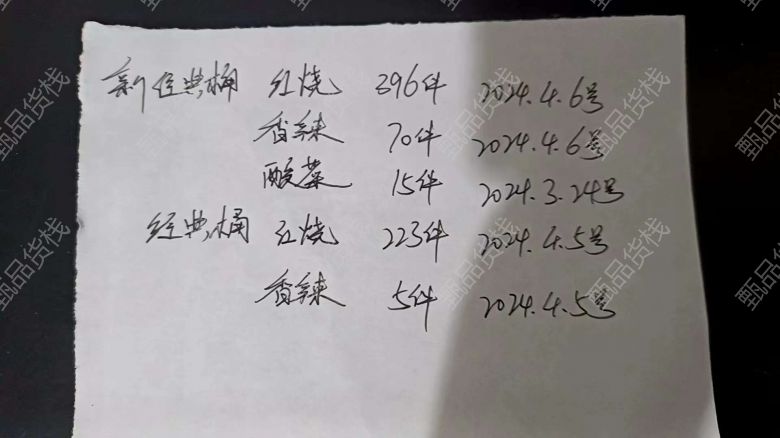 新经典桶 红烧 396件 2024.4.6号
香辣 70件 2024.4.6号
酸菜 15件 2024.3.24号
经典桶 红烧 223件 2024.4.5号
香辣 5件 2024.4.5号
甄品货栈